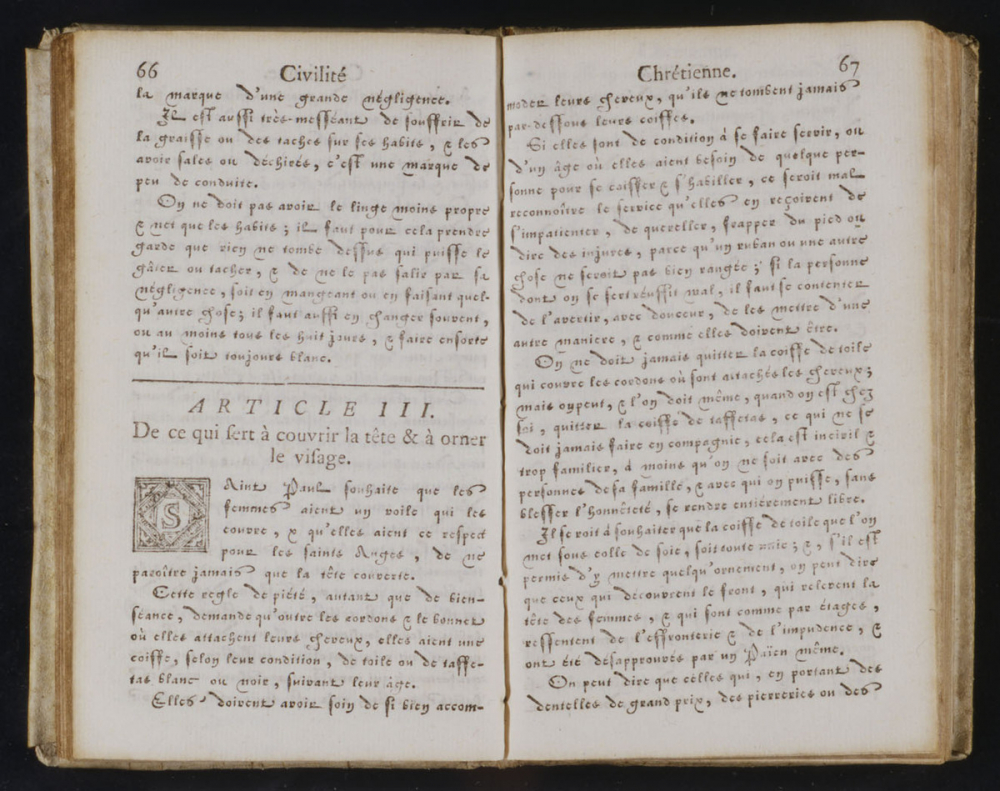 66
Civilité
la marque d'une grande négligence.
Il est aussi très-messéant de souffrir de
la graisse ou des taches sur ses habits, & les
avoir sales ou déchirés, c'est une marque de
peu de conduite.
On ne doit pas avoir le linge moins propre
& net que les habits ; il faut pour cela prendre
garde que rien ne tombe dessus qui puisse le
gâter ou tacher, & de ne le pas salir par sa
négligence, soit en mangeant ou en faisant quel-
qu'autre chose ; il faut aussi en changer souvent,
ou au moins tous les huit jours, & faire ensorte
qu'il soit toujours blanc.
ARTICLE III.
De ce qui sert à couvrir la tête & à orner
le visage.
SAint Paul souhaite que les
femmes aient un voile qui les
couvre, & qu'elles aient ce respect
pour les saints Anges, de ne
paroître jamais que la tête couverte.
Cette regle de piété, autant que de bien-
séance, demande qu'outre les cordons & le bonnet
où elles attachent leurs cheveux, elles aient une
coiffe, selon leur condition, de toile ou de taffe-
tas blanc ou noir, suivant leur âge.
Elles doivent avoir soin de si bien accom-
Chrétienne.
67
moder leurs cheveux, qu'ils ne tombent jamais
par-dessous leurs coiffes.
Si elles sont de condition à se faire servir, ou
d'un âge où elles aient besoin de quelque per-
sonne pour se coiffer & s'habiller, ce seroit mal
reconnoître le service qu'elles en reçoivent de
s'impatienter, de quereller, frapper du pied ou
dire des injures, parce qu'un ruban ou une autre
chose ne seroit pas bien rangée ; si la personne
dont on se sert réussit mal, il faut se contenter
de l'avertir, avec douceur, de les mettre d'une
autre maniere, & comme elles doivent être.
On ne doit jamais quitter la coiffe de toile
qui couvre les cordons où sont attachés les cheveux ;
mais on peut, & l'on doit même, quand on est chez
soi, quitter la coiffe de taffetas, ce qui ne se
doit jamais faire en compagnie, cela est incivil &
trop familier, à moins qu'on ne soit avec des
personnes de sa famille, & avec qui on puisse, sans
blesser l'honnêteté, se rendre entiérement libre.
Il seroit à souhaiter que la coiffe de toile que l'on
met sous celle de soie, soit toute unie ; &, s'il est
permis d'y mettre quelqu'ornement, on peut dire
que ceux qui découvrent le front, qui relevent la
tête des femmes, & qui sont comme par étages,
ressentent de l'effronterie & de l'impudence, &
ont été désapprouvés par un Païen même.
On peut dire que celles qui, en portant des
dentelles de grand prix, des pierreries ou des